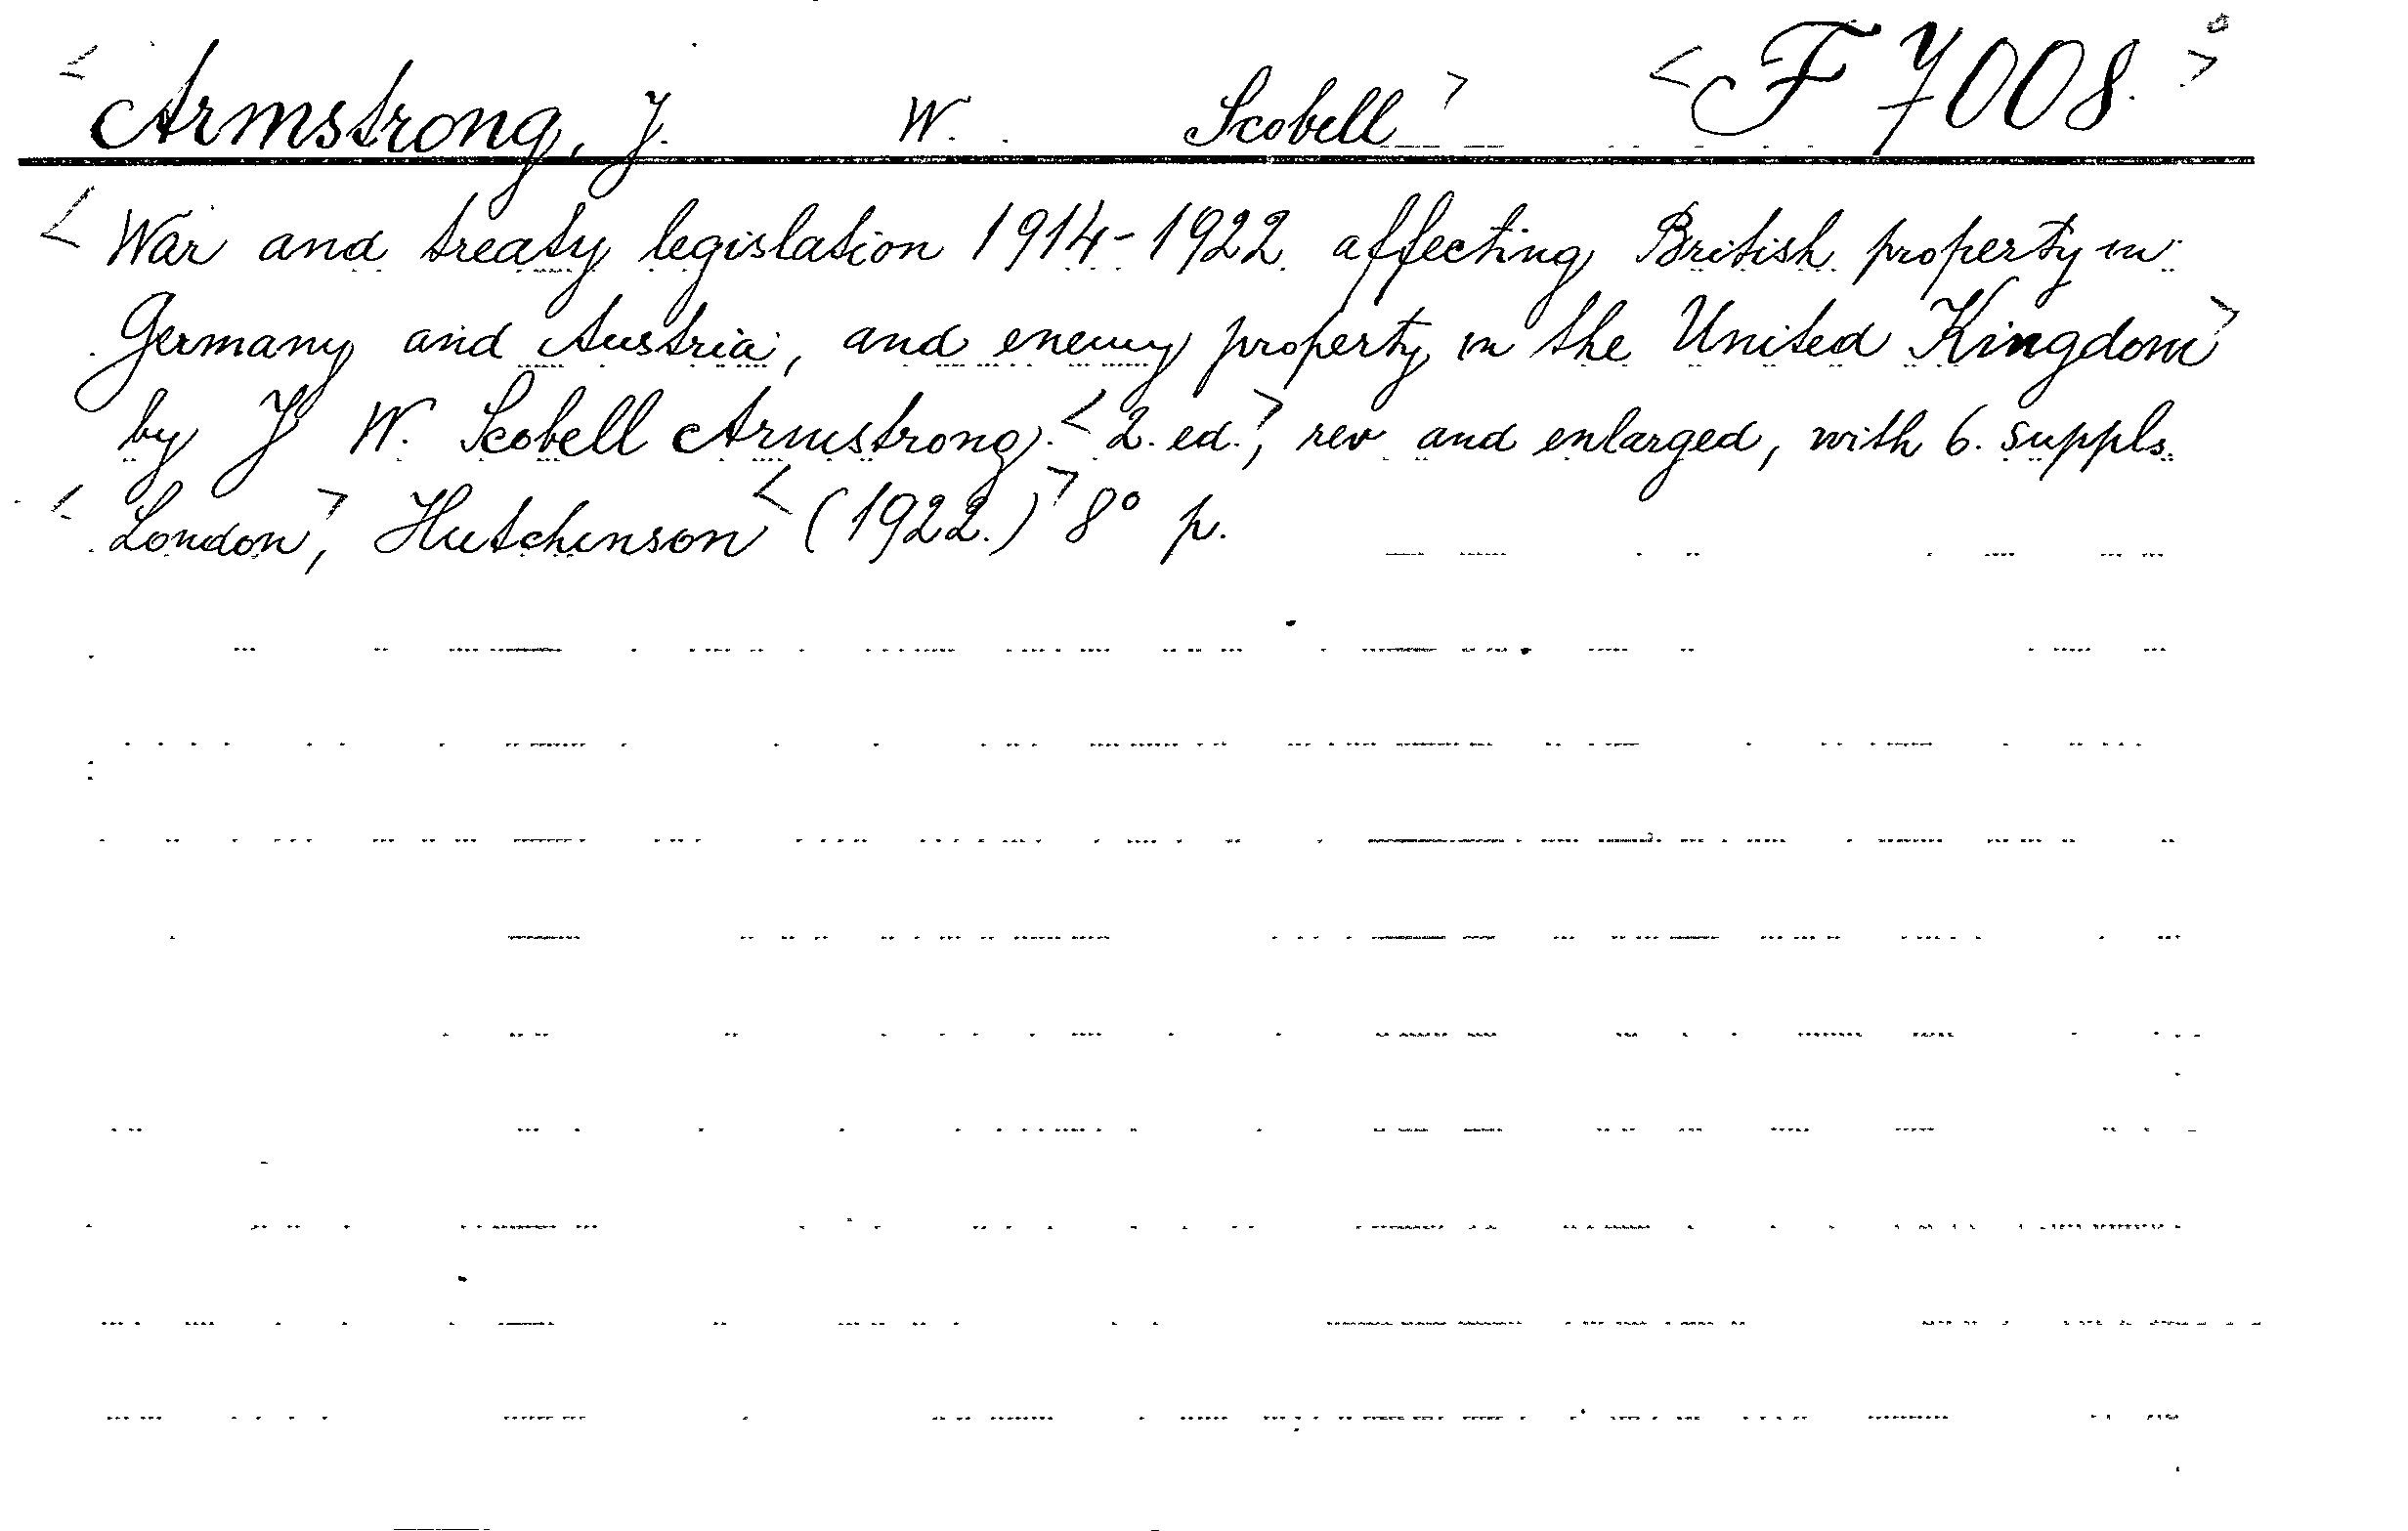 < Armstrong, J. W. Scobell > < F 7008. >
< War and treaty legislation 1914-1922 affecting British property in
Germany and Austria, and enemy property in the United Kingdom >
by J W. Scobell Armstrong. < 2. ed. >, rev and enlarged, with 6. suppls.
< London >, Hutchinson < (1922.) > 8° p.